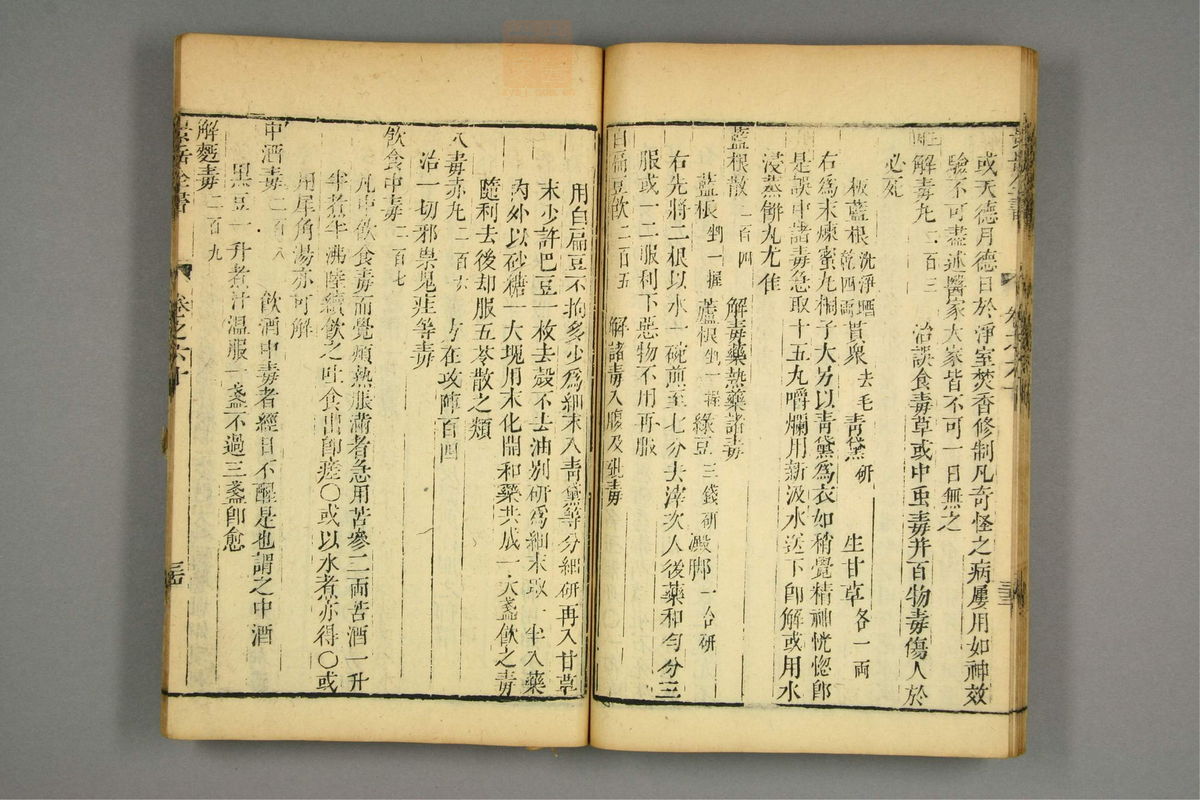 景岳全書
卷之六十
三三
或天德月德日於淨室焚香修制凡奇怪之病屢用如神效
驗不可盡述醫家大家皆不可一日無之
解毒丸 二百三 治誤食毒草或中䖝毒并百物毒傷人於
必死
板藍根 洗淨晒乾四兩 貫衆 去毛 青黛 研 生甘草 各一兩
右爲末煉蜜丸桐子大另以青黛爲衣如稍覺精神恍惚即
是誤中諸毒急取十五丸嚼爛用新汲水送下即解或用水
浸蒸餅丸尤佳
藍根散 二百四 解毒藥熱藥諸毒
藍根 剉一握 蘆根 剉一握 綠豆 三錢研 澱脚 一合研
右先將二根以水一碗煎至七分去滓次入後藥和勻分三
服或一二服利下惡物不用再服
白扁豆飲 二百五 解諸毒入腹及砒毒
用白扁豆不拘多少爲細末入青黛等分細研再入甘草
末少許巴豆一枚去殼不去油别研爲細末取一半入藥
內外以砂糖一大塊用末化開和藥共成一大盞飲之毒
隨利去後却服五苓散之類
八毒赤丸 二百六 方在攻陣百四
治一切邪祟鬼疰等毒
飲食中毒 二百七
凡中飲食毒而覺煩熱脹滿者急用苦參二兩苦酒一升
半煮半沸陸續飲之吐食出即瘥〇或以水煮亦得〇或
用犀角湯亦可解
中酒毒 二百八 飲酒中毒者經日不醒是也謂之中酒
黒豆一升煮汁溫服一盞不過三盞即愈
解麪毒 二百九
景岳全書
卷之六十
三四